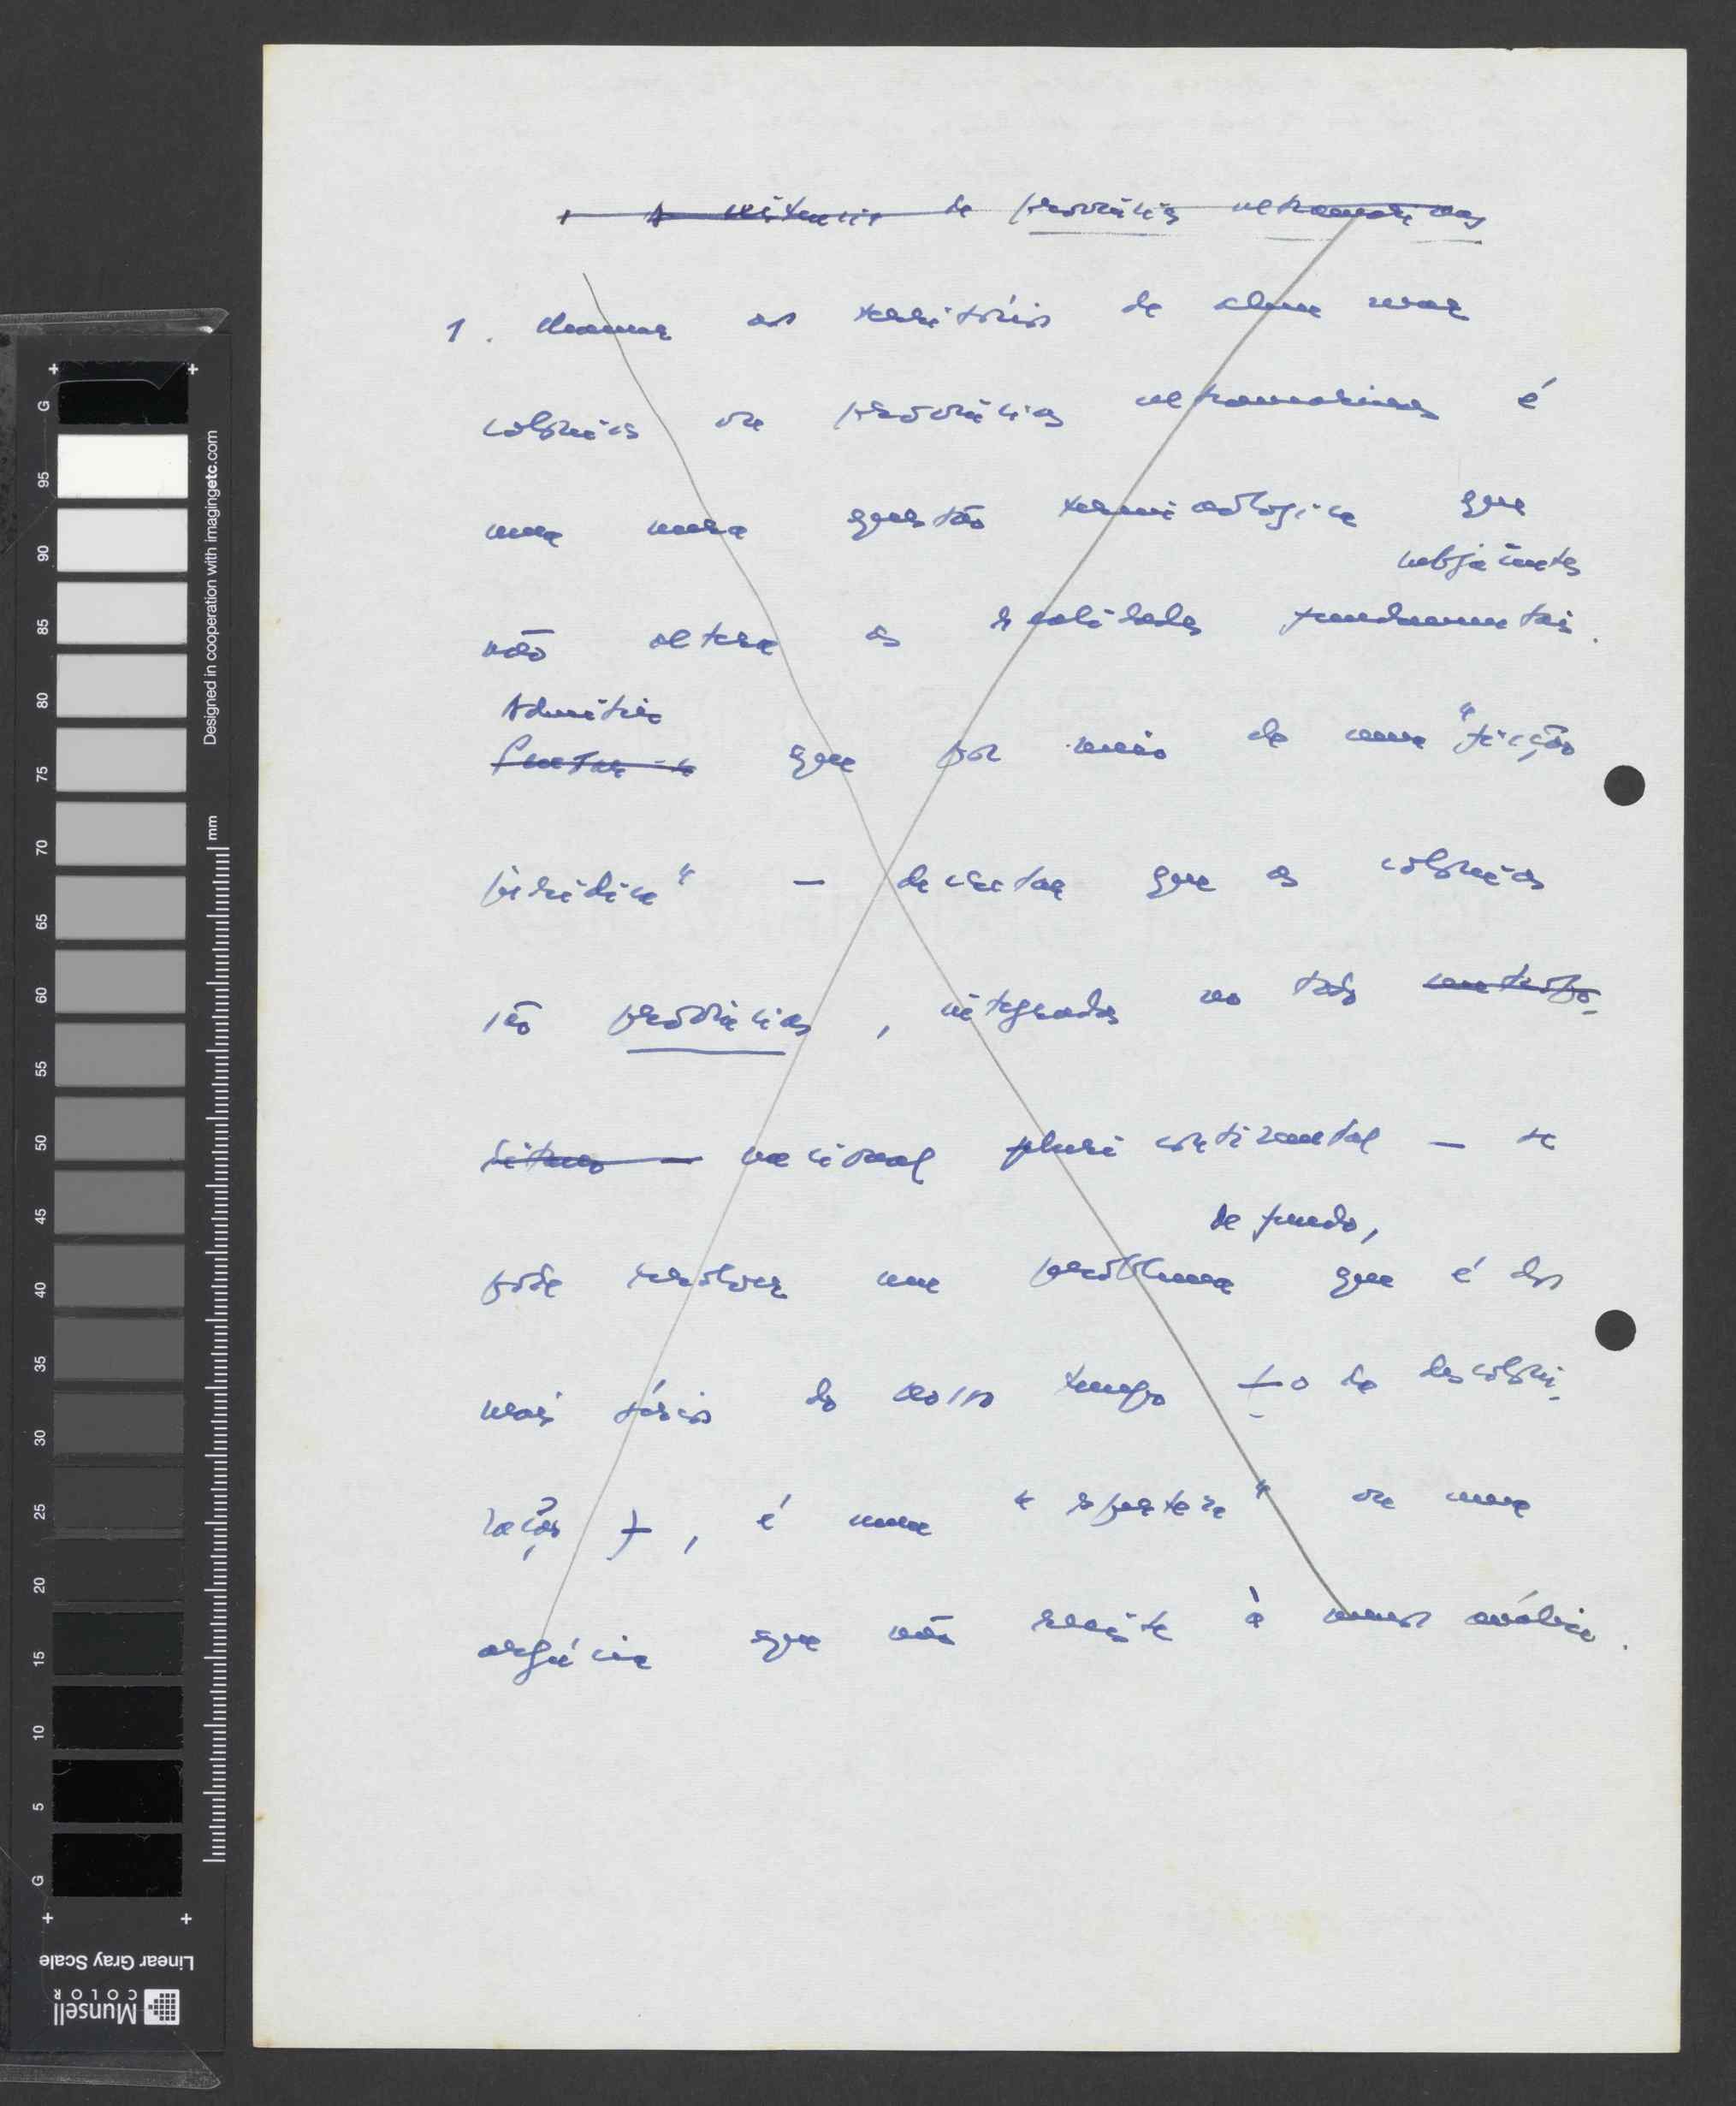 A existência de províncias ultramarinas
1. Chamar aos territórios de além mar
colónias ou províncias ultramarinas é
uma mera questão terminológica que
subjacentes
não altera as realidades fundamentais.
Admitir
que por meio de uma "ficção
jurídica" — decretar que as colónias
são províncias, integradas no todo
nacional pluricontinental — se
de fundo,
pode resolver um problema que é dos
mais sérios do nosso tempo + o da descoloni-
zação +, é uma "esperteza" ou uma
argúcia que não resiste à menor análise.
G
95
90
85
80
75
70
65
60
55
50
45
40
35
30
25
20
15
10
5
G
mm
Designed in cooperation with imagingetc.com
Linear Gray Scale
Munsell
COLOR